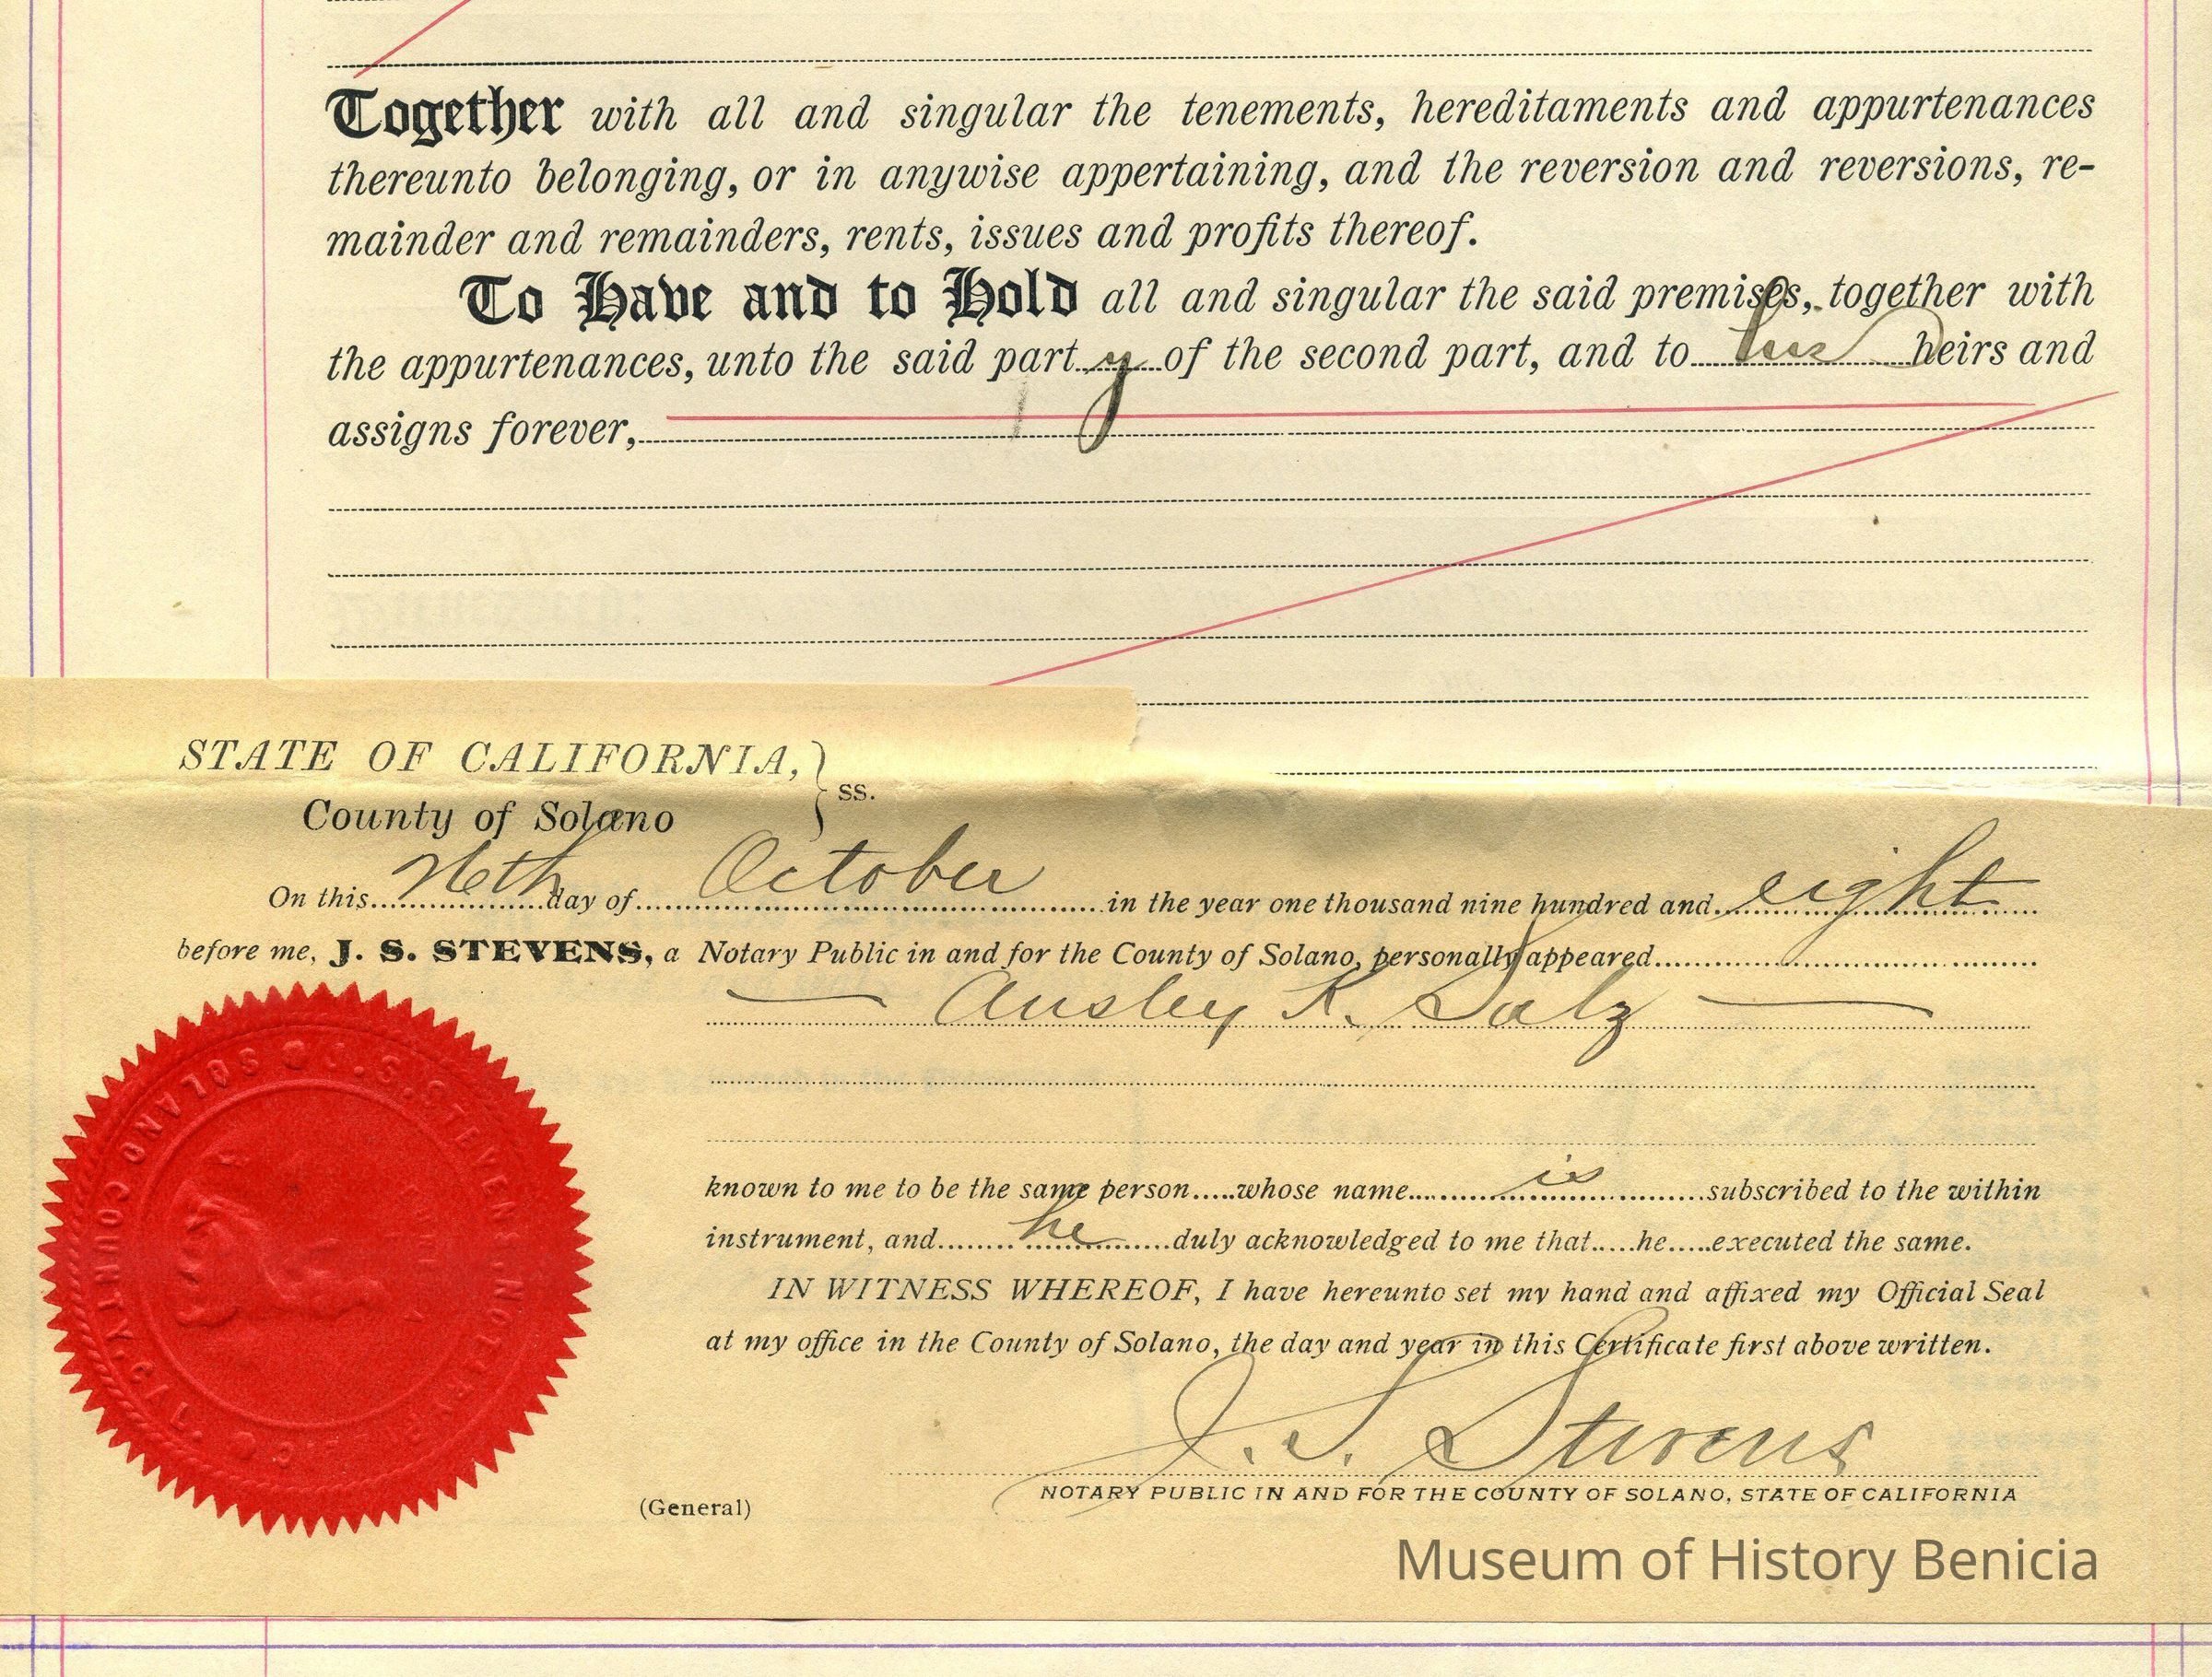 Together with all and singular the tenements, hereditaments and appurtenances
thereunto belonging, or in anywise appertaining, and the reversion and reversions, re-
mainder and remainders, rents, issues and profits thereof.
To Have and to Hold all and singular the said premises, together with
the appurtenances, unto the said part y of the second part, and to his heirs and
assigns forever,
STATE OF CALIFORNIA,
ss.
County of Solano
On this day of October in the year one thousand nine hundred and eight
before me, J. S. STEVENS, a Notary Public in and for the County of Solano, personally appeared
Ansley K. Salz
known to me to be the same person whose name is subscribed to the within
instrument, and he duly acknowledged to me that he executed the same.
IN WITNESS WHEREOF, I have hereunto set my hand and affixed my Official Seal
at my office in the County of Solano, the day and year in this Certificate first above written.
J. S. Stevens
NOTARY PUBLIC IN AND FOR THE COUNTY OF SOLANO, STATE OF CALIFORNIA
(General)
J. S. STEVENS. SOLANO COUNTY, CAL.
Museum of History Benicia